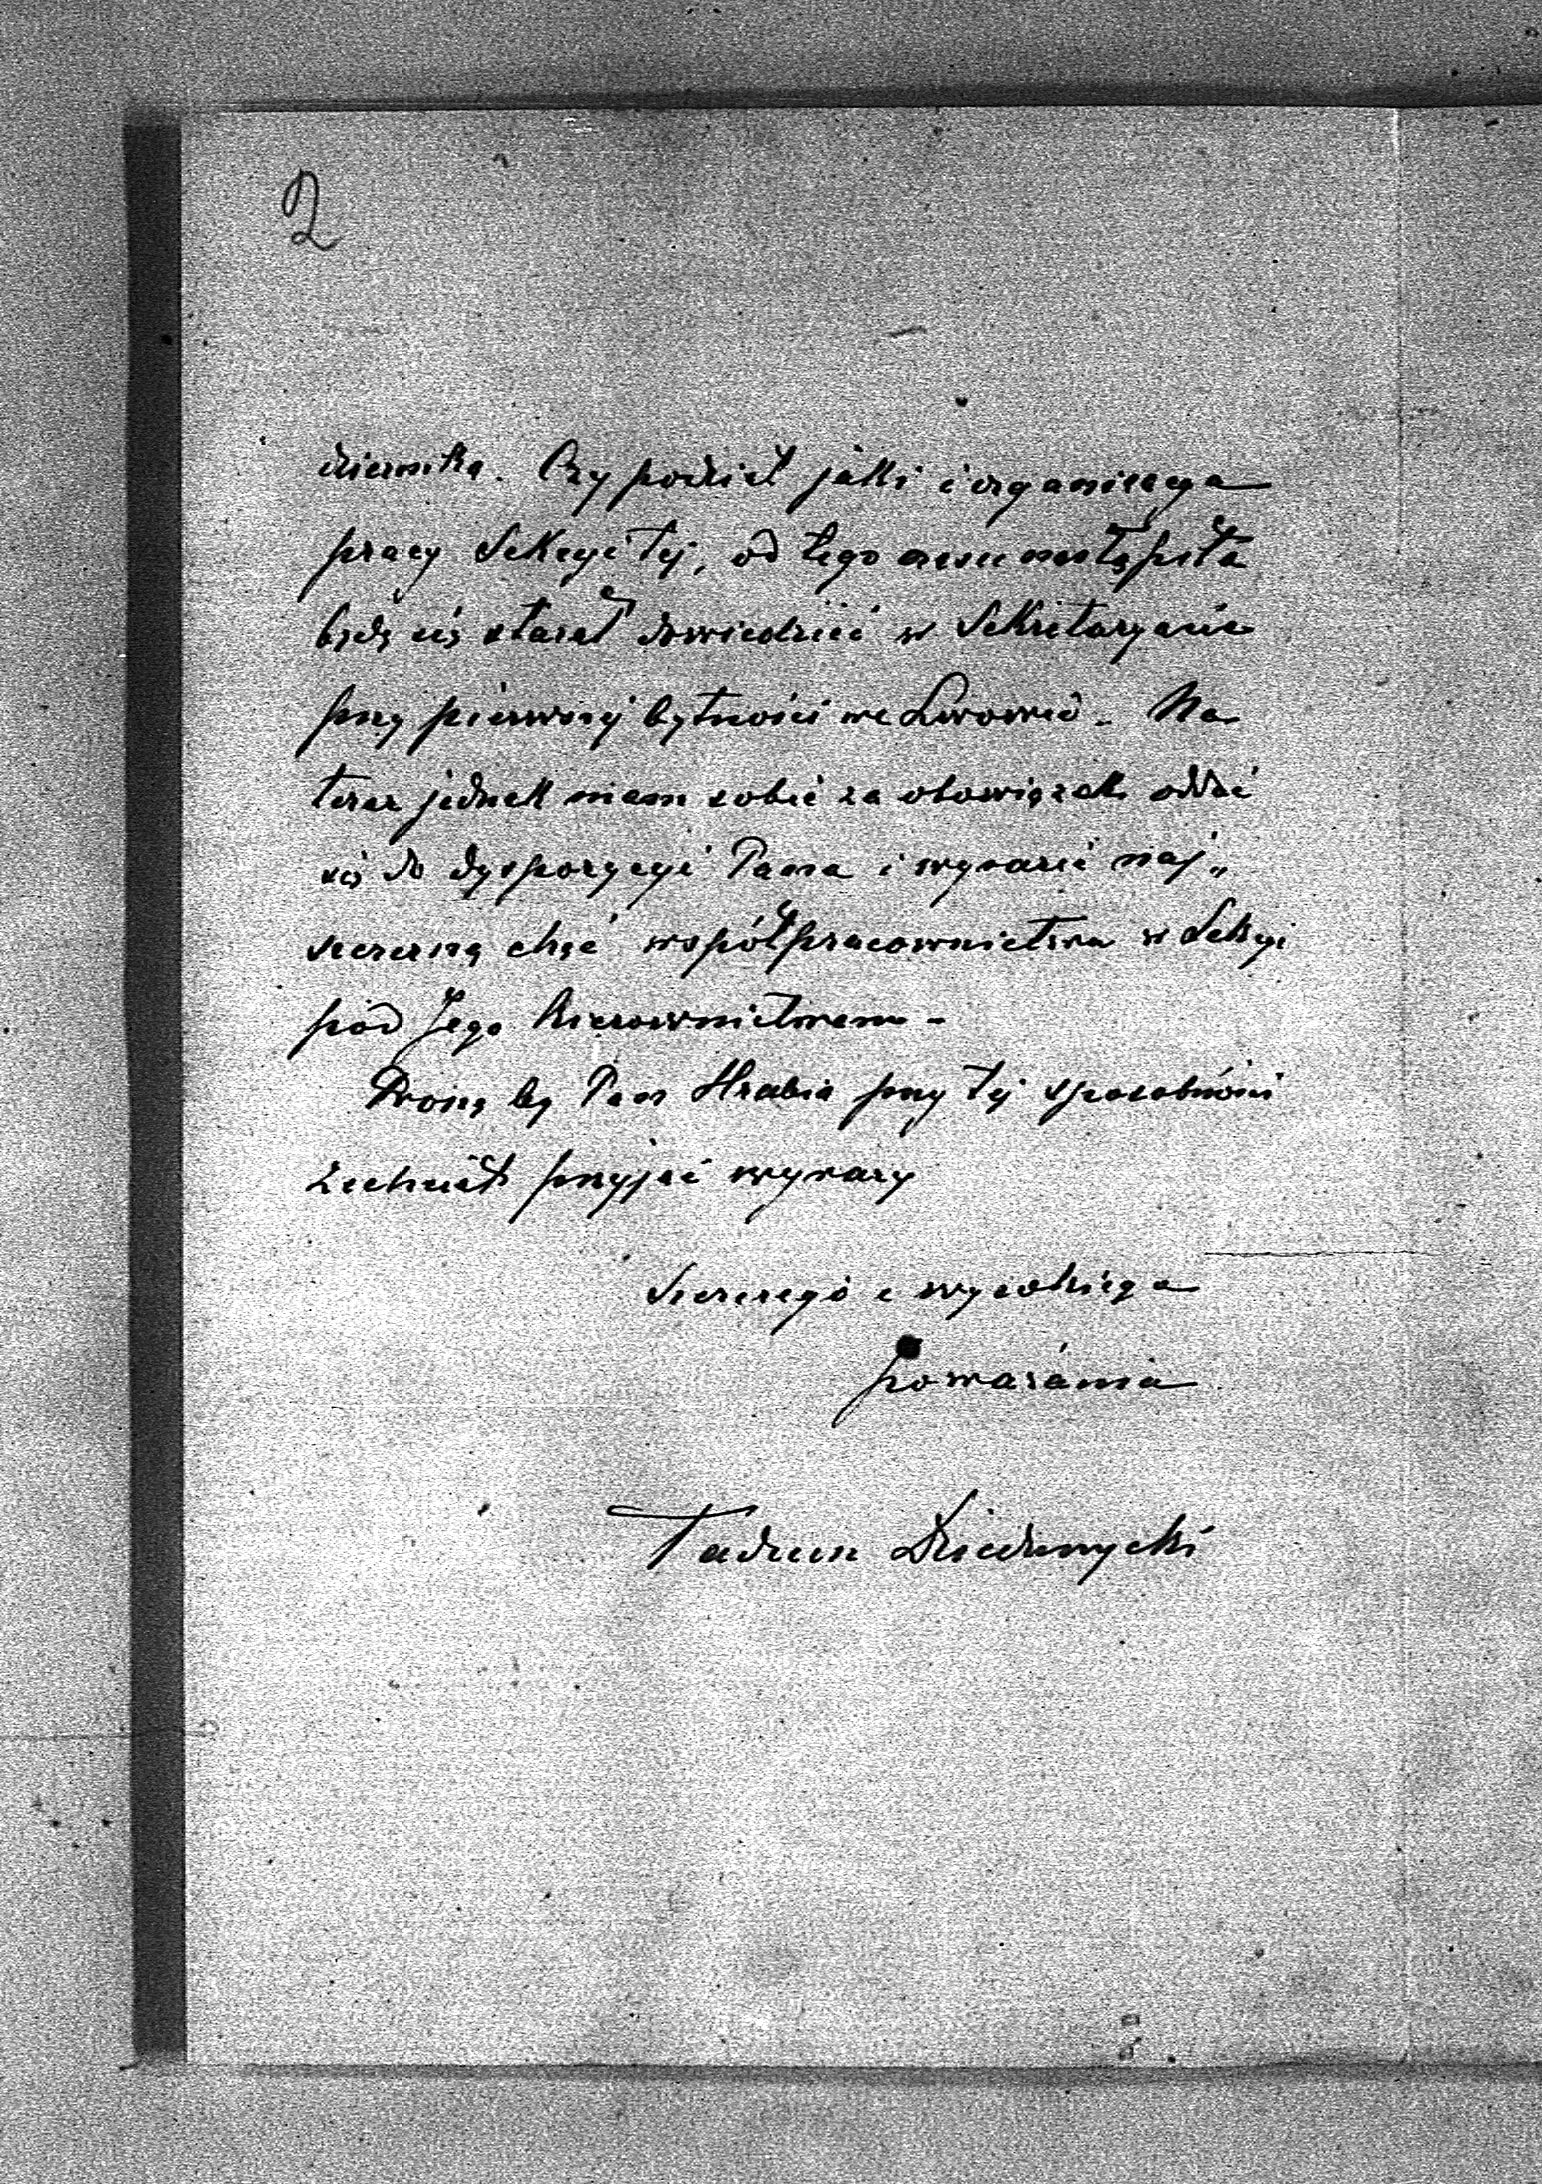 2
dziernika. Czy podział jakki i organizacya
pracy Sekcyi tej, od tego czasu nastąpiła
będę się starał dowiedzieć w Sekretaryacie
przy pierwszej bytności we Lwowie. Na
teraz jednak mam sobie za obowiązek oddać
się do dyspozycyi Pana i wyrazić naj„
szczerszą chęć współpracownictwa w Sekcyi
pod Jego kierownictwem -
Proszę by Pan Hrabia przy tej sposobności
zechciał przyjąć wyrazy
Szczerego i wysokiego
poważania
Tadeusz Dzieduszycki